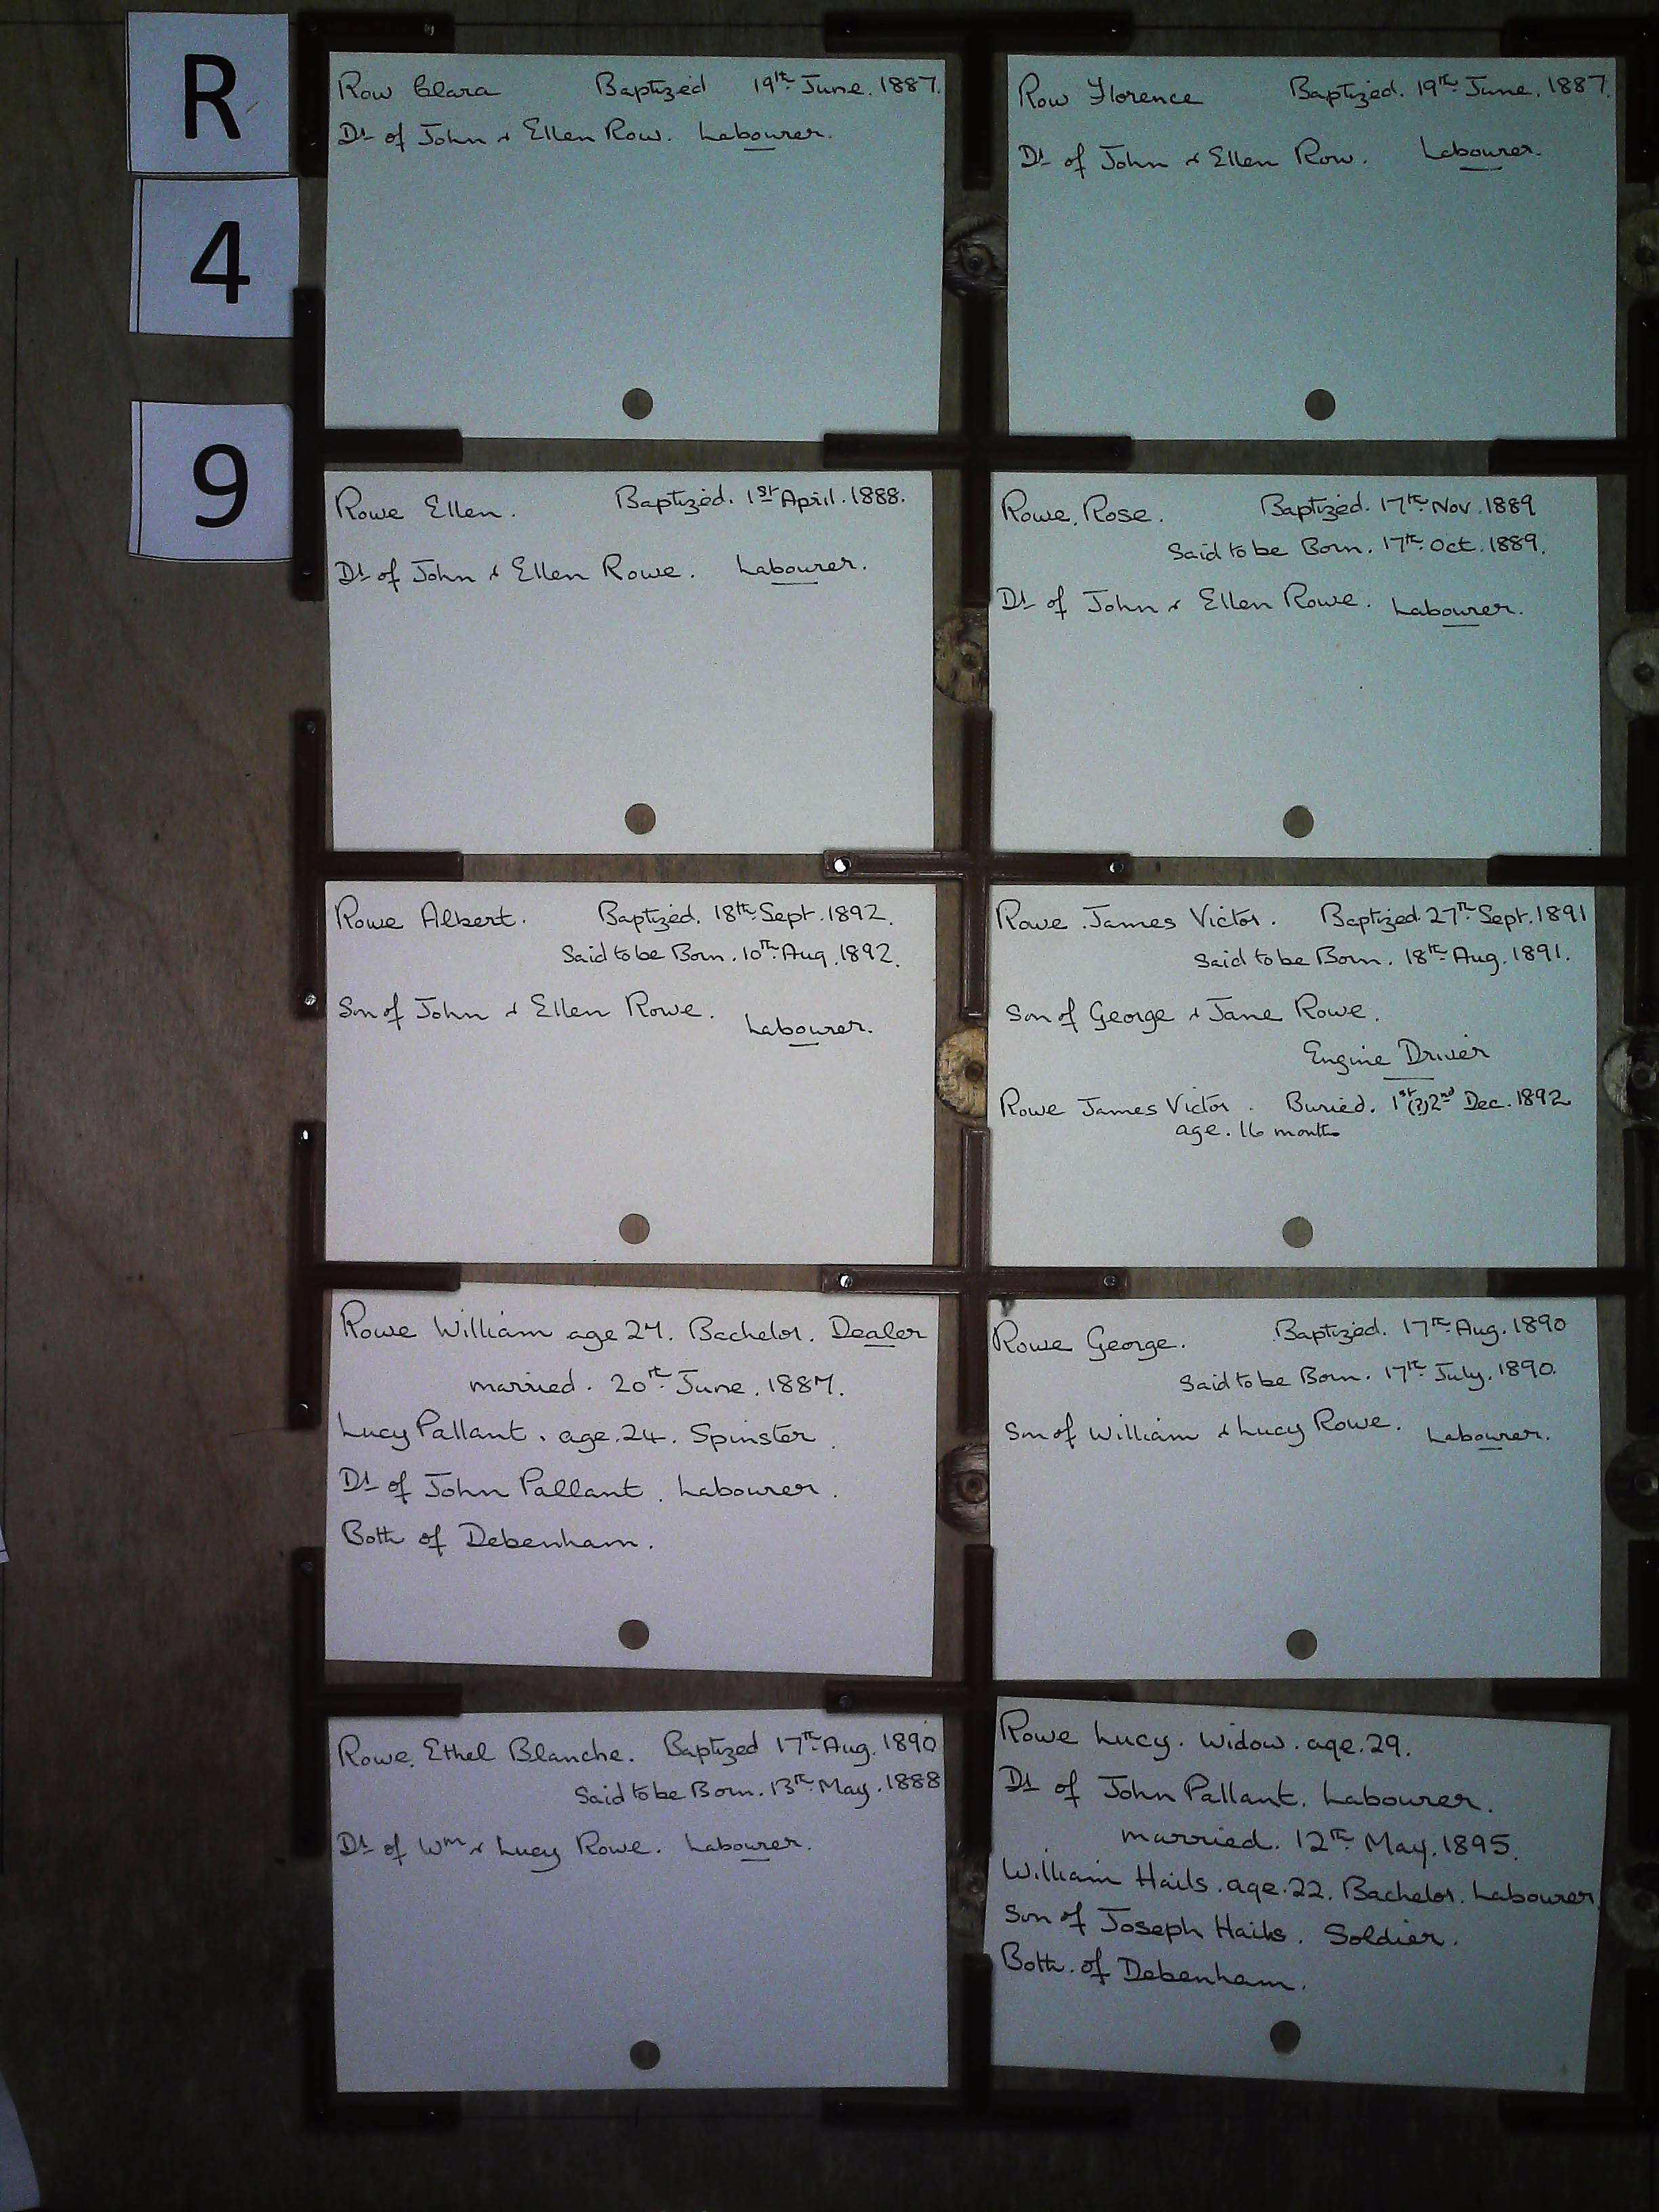 R
4
9
Row Clara Baptized 19th June. 1887.
Dt of John & Ellen Row. Labourer.
Row Florence Baptized. 19th June. 1887.
Dt of John & Ellen Row. Labourer.
Rowe Ellen. Baptized. 1st April. 1888.
Dt of John & Ellen Rowe. Labourer.
Rowe. Rose. Baptized. 17th Nov. 1889
Said to be Born. 17th Oct. 1889.
Dt of John & Ellen Rowe. Labourer.
Rowe Albert. Baptized. 18th Sept. 1892.
Said to be Born. 10th Aug. 1892.
Son of John & Ellen Rowe. Labourer.
Rowe. James Victor. Baptized. 27th Sept. 1891
Said to be Born. 18th Aug. 1891.
Son of George & Jane Rowe.
Engine Driver
Rowe James Victor. Buried. 1st (?) 2nd Dec. 1892
age. 16 months
Rowe William age 27. Bachelor. Dealer
married. 20th June. 1887.
Lucy Pallant. age. 24. Spinster.
Dt of John Pallant. Labourer.
Both of Debenham.
Rowe George. Baptized. 17th Aug. 1890
Said to be Born. 17th July. 1890.
Son of William & Lucy Rowe. Labourer.
Rowe. Ethel Blanche. Baptized 17th Aug. 1890
Said to be Born. 13th May. 1888
Dt of Wm & Lucy Rowe. Labourer.
Rowe Lucy. Widow. age. 29.
Dt of John Pallant. Labourer.
married. 12th May. 1895.
William Hails. age. 22. Bachelor. Labourer
Son of Joseph Hails. Soldier.
Both. of Debenham.